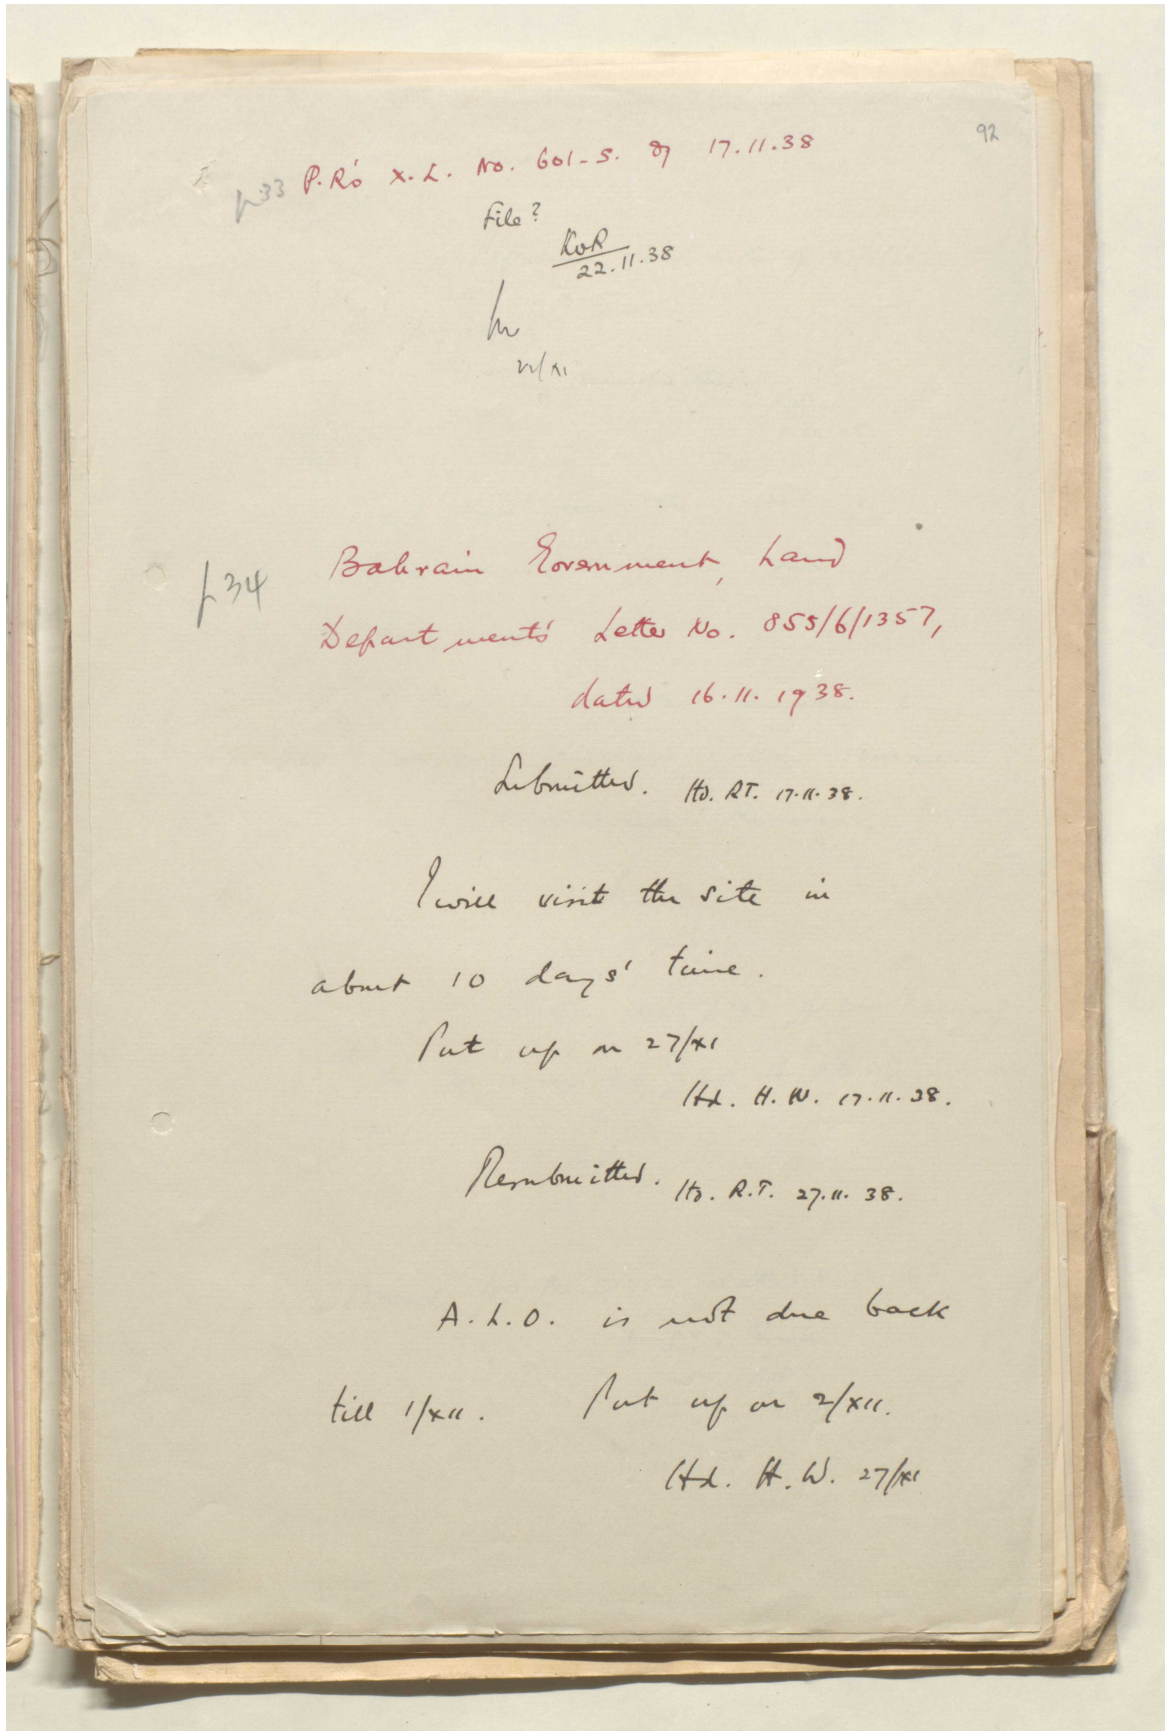 92
p 33 P.R's X.L. No. 601-S. of 17.11.38
File?
22.11.38
22/XI
p 34 Bahrain Government, Land
Department's Letter No. 855/6/1357,
dated 16.11.1938.
Submitted. Itd. R.T. 17.11.38.
I will visit the site in
about 10 days' time.
Put up on 27/XI
Itd. H.W. 17.11.38.
Resubmitted. Itd. R.T. 27.11.38.
A.L.O. is not due back
till 1/XII. Put up on 2/XII.
Itd. H.W. 27/XI